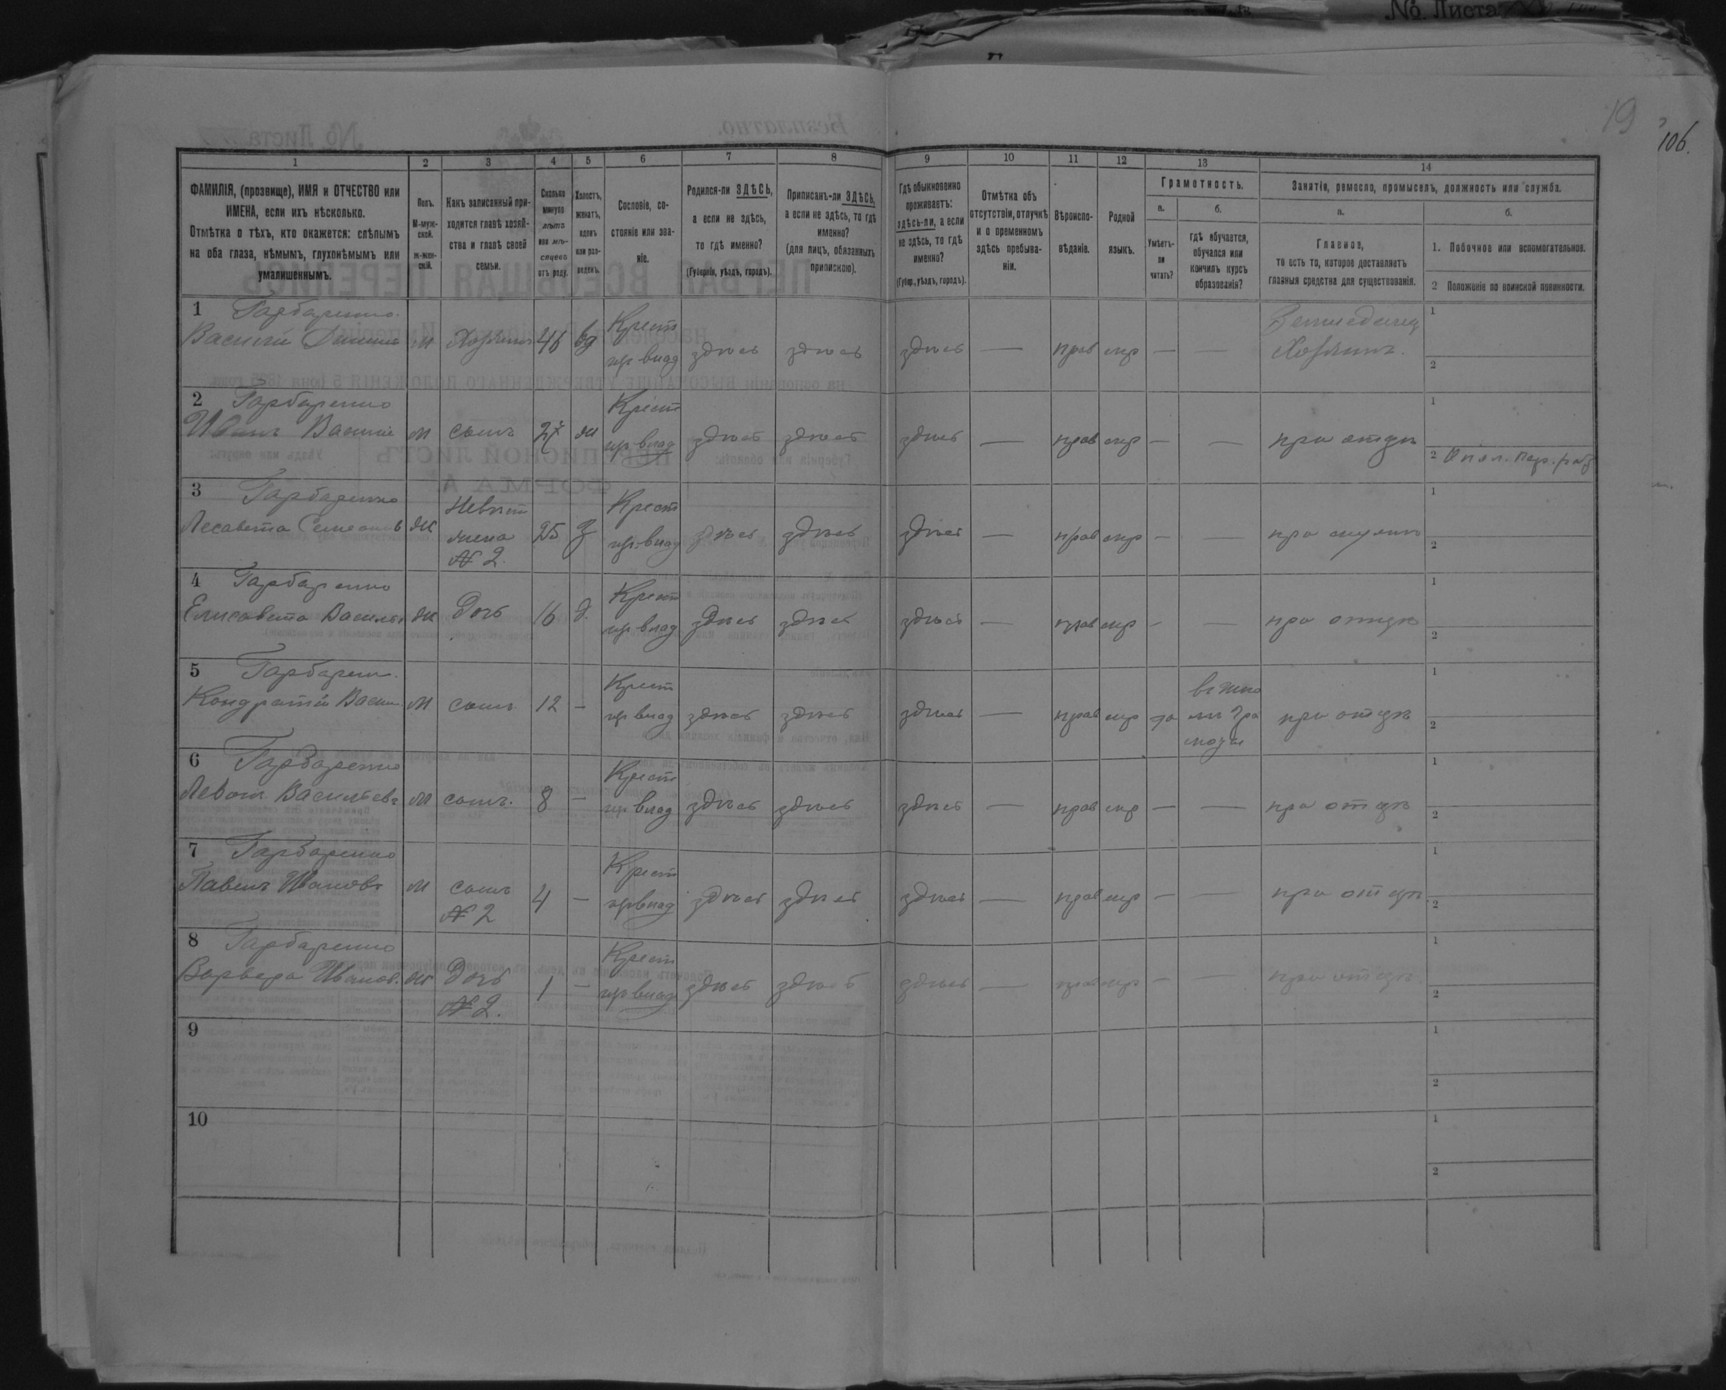 № Листа
19
106.
1 2 3 4 5 6 7 8 9 10 11 12 13 14
ФАМИЛІЯ, (прозвище), ИМЯ и ОТЧЕСТВО или ИМЕНА, если ихъ нѣсколько.
Отмѣтка о тѣхъ, кто окажется: слѣпымъ на оба глаза, нѣмымъ, глухонѣмымъ или умалишеннымъ.
Полъ.
М-мужской.
ж-женскій.
Какъ записанный приходится главѣ хозяйства и главѣ своей семьи.
Сколько минуло лѣтъ или мѣсяцевъ отъ роду.
Холостъ, женатъ, вдовъ или разведенъ.
Сословіе, состояніе или званіе.
Родился-ли ЗДѢСЬ, а если не здѣсь, то гдѣ именно?
(Губернія, уѣздъ, городъ).
Приписанъ-ли ЗДѢСЬ, а если не здѣсь, то гдѣ именно?
(для лицъ, обязанныхъ припискою).
Гдѣ обыкновенно проживаетъ: здѣсь-ли, а если не здѣсь, то гдѣ именно?
(Губер., уѣздъ, городъ).
Отмѣтка объ отсутствіи, отлучкѣ и о временномъ здѣсь пребываніи.
Вѣроисповѣданіе.
Родной языкъ.
Грамотность.
а.
Умѣетъ-ли читать?
б.
гдѣ обучается, обучался или кончилъ курсъ образованія?
Занятіе, ремесло, промыселъ, должность или служба.
а.
Главное,
то есть то, которое доставляетъ главныя средства для существованія.
б.
1. Побочное или вспомогательное.
2 Положеніе по воинской повинности.
1 Гарбаренко
Василій м Хозяинъ 46 вд Крест пр влад здѣсь здѣсь здѣсь — прав мр — — Земледѣлец Хозяинъ. 1 2
2 Гарбаренко
Иванъ Василіе м сынъ 27 ж Крест пр. влад здѣсь здѣсь здѣсь — прав мр — — при отцѣ 1 2
3 Гарбаренко
Лесавета ж Невѣст жена № 2. 25 з Крест пр. влад здѣсь здѣсь здѣсь — прав мр — — при мужѣ 1 2
4 Гарбаренко
Елисавета Василье ж Дочь 16 д. Крест пр влад здѣсь здѣсь здѣсь — прав мр — — при отцѣ 1 2
5 Гарбарен.
Кондратій Васил м сынъ 12 — Крест пр влад здѣсь здѣсь здѣсь — прав мр да при отцѣ 1 2
6 Гарбаренко
Левон Васильевъ м сынъ. 8 — Крест пр влад здѣсь здѣсь здѣсь — прав мр — — при отцѣ 1 2
7 Гарбаренко
Павелъ Ивановъ м сынъ № 2 4 — Крест пр влад здѣсь здѣсь здѣсь — прав мр — — при отцѣ 1 2
8 Гарбаренко
Варвара Иванов. ж Дочь № 2. 1 — Крест пр влад здѣсь здѣсь здѣсь — прав мр — — при отцѣ 1 2
9 1 2
10 1 2